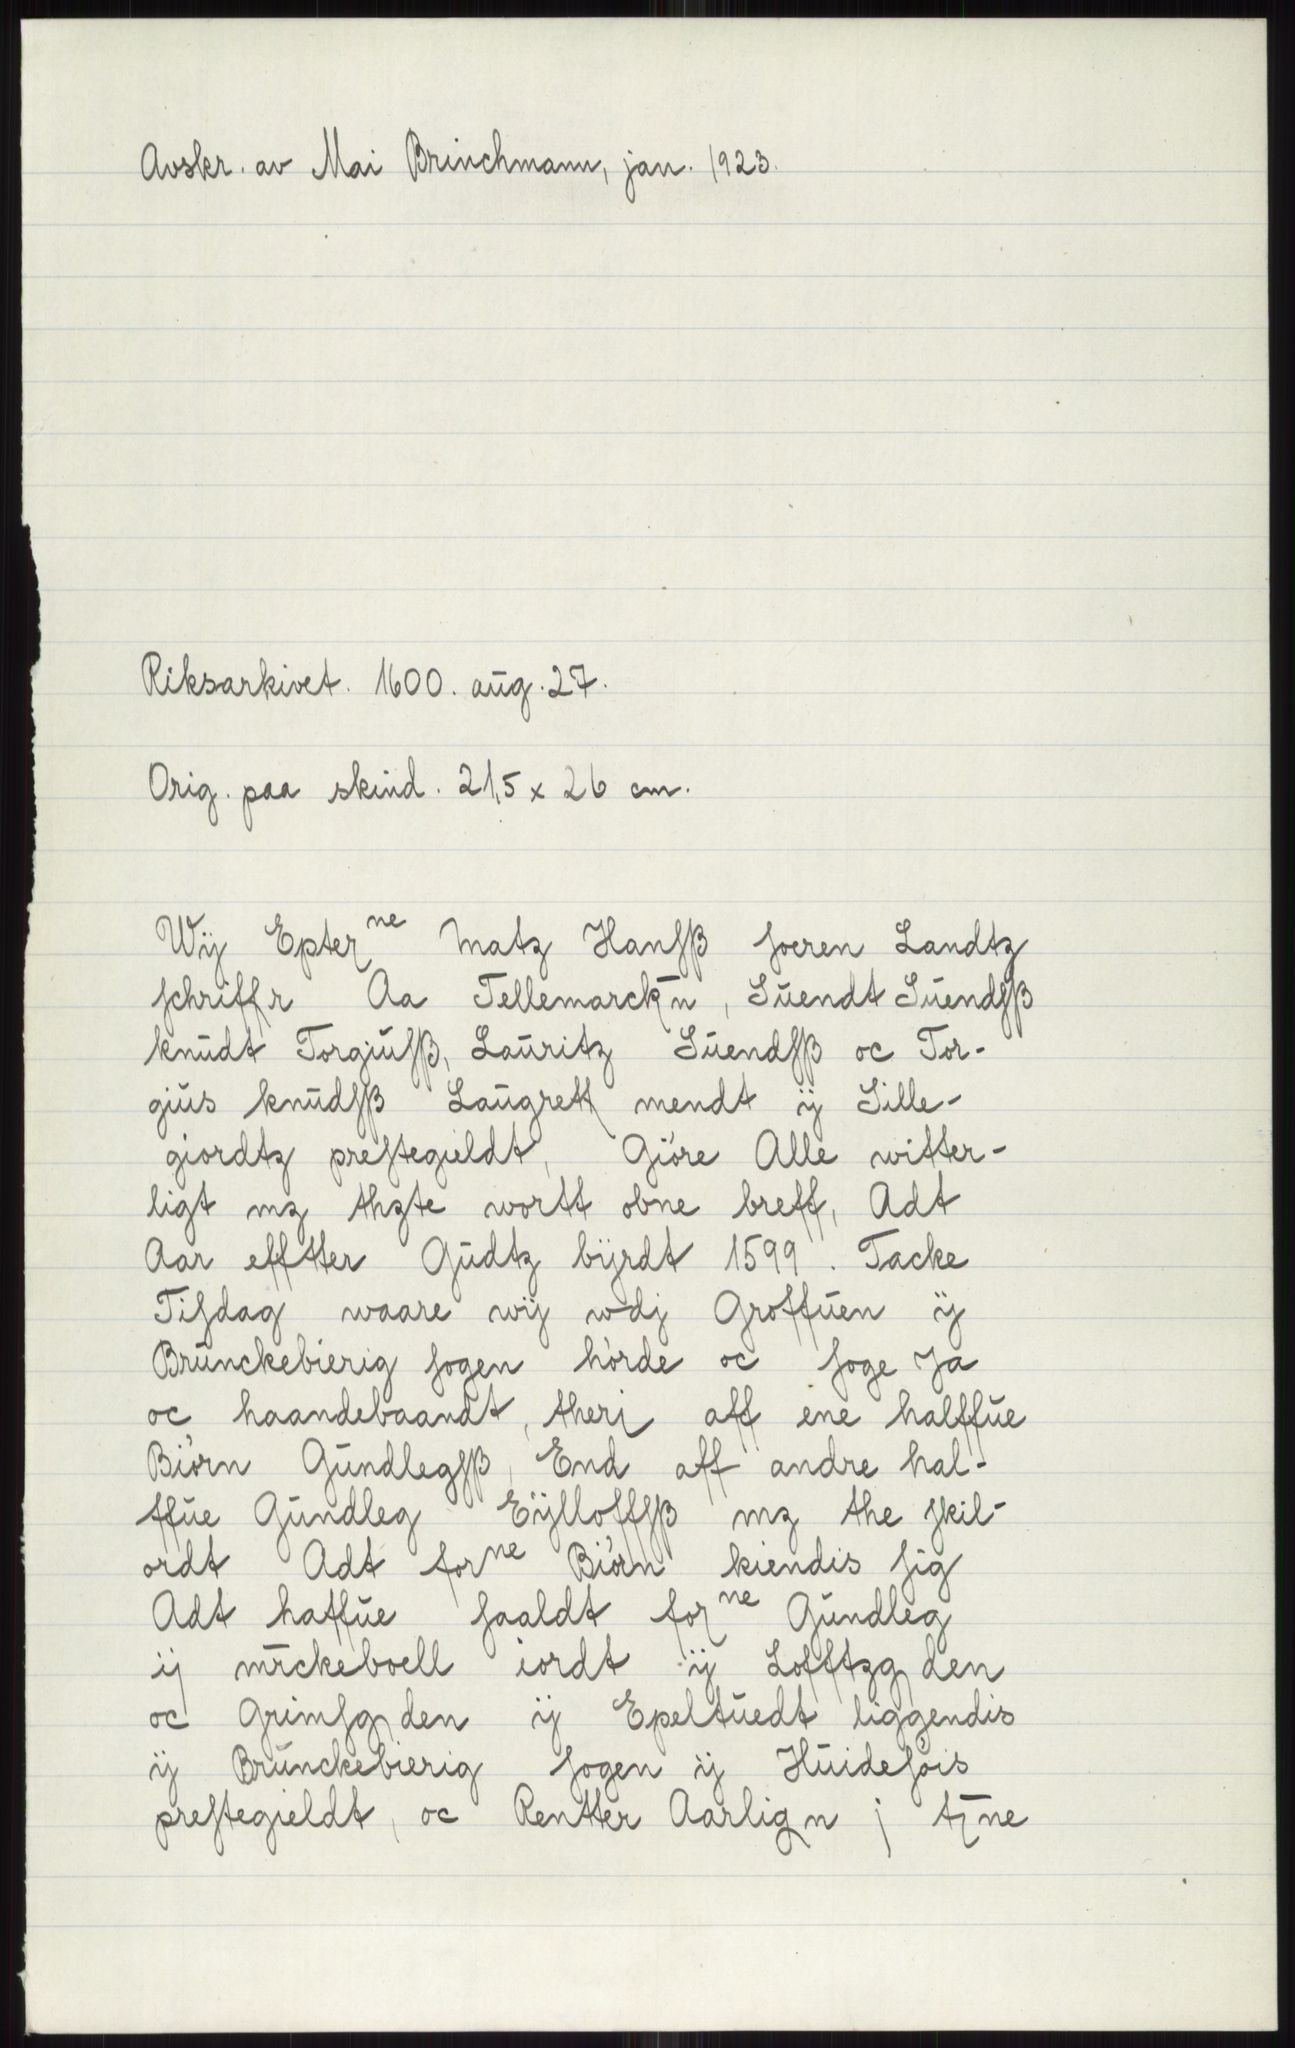 Avskr. av Mai Brinchmann, jan. 1923.
Riksarkivet. 1600. aug. 27.
Orig. paa skind. 21,5 x 26 cm.
Wÿ Epterⁿᵉ Matz Hanſß ſoeren Landtz
ſchriffr Aa Tellemarck̄n, Suendt Suendſß
knudt Torgiuſß, Lauritz Suendſß oc Tor-
gius knudſß Laugrett mendt ÿ Sille-
giordtz preſtegieldt, Giöre Alle witter-
ligt mz thzte wortt obne breff, Adt
Aar efftter Gudtz bÿrdt 1599. Tacke
Tiſdag waare wÿ wdj Groffuen ÿ
Brunckebierig ſogen hörde oc ſoge Ja
oc haandebaandt, therj aff ene halffue
Biörn Gundlegſß, End aff andre hal-
ffue Gundleg Eÿlloffſß mz the ſkil-
ordt Adt forⁿᵉ Biörn kiendis ſig
Adt haffue ſaaldt forⁿᵉ Gundleg
ij mr̄ckeboell iordt ÿ Lofftzg den
oc Grimſg den ÿ Epeltuedt liggendis
ÿ Brunckebierig ſogen ÿ Huideſöis
preſtegieldt, oc Rentter Aarlign j